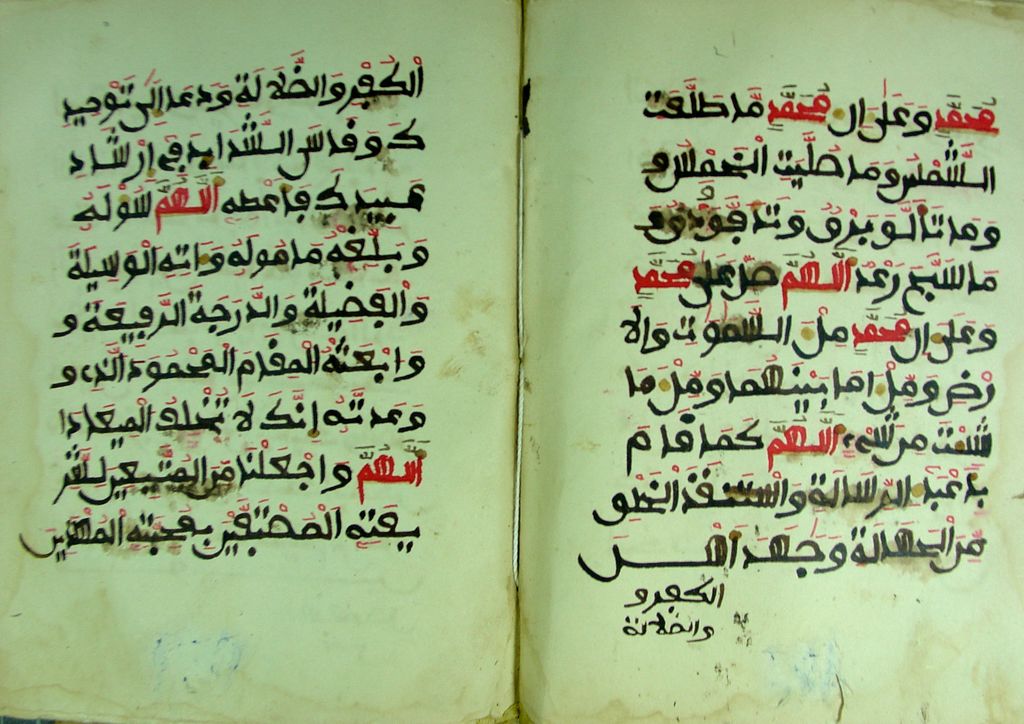 محمد وعلى ال محمد ما طلعت
الشمس وما صليت الخمس و
وما تألق برق وتدفق ودق و
ما سبح رعد اللهم صل على محمد
وعلى ال محمد ملء السموت والا
رض وملء ما بينهما وملء ما
شئت من شيء اللهم كما قام
باعباء الرسالة واستنقذ الخلق
من الجهالة وجهد اهل
الكفر و
والضلالة
الكفر والضلالة ودعا الى توحيد
ك وقاسى الشدايد في ارشاد
عبيدك فاعطه اللهم سوله
وبلغه ماموله واته الوسيلة
والفضيلة والدرجة الرفيعة و
وابعثه المقام المحمود الذى و
وعدته انك لا تخلف الميعادا
اللهم واجعلنا من المتبعين لشر
يعته المتصفين بمحبته المهتدين